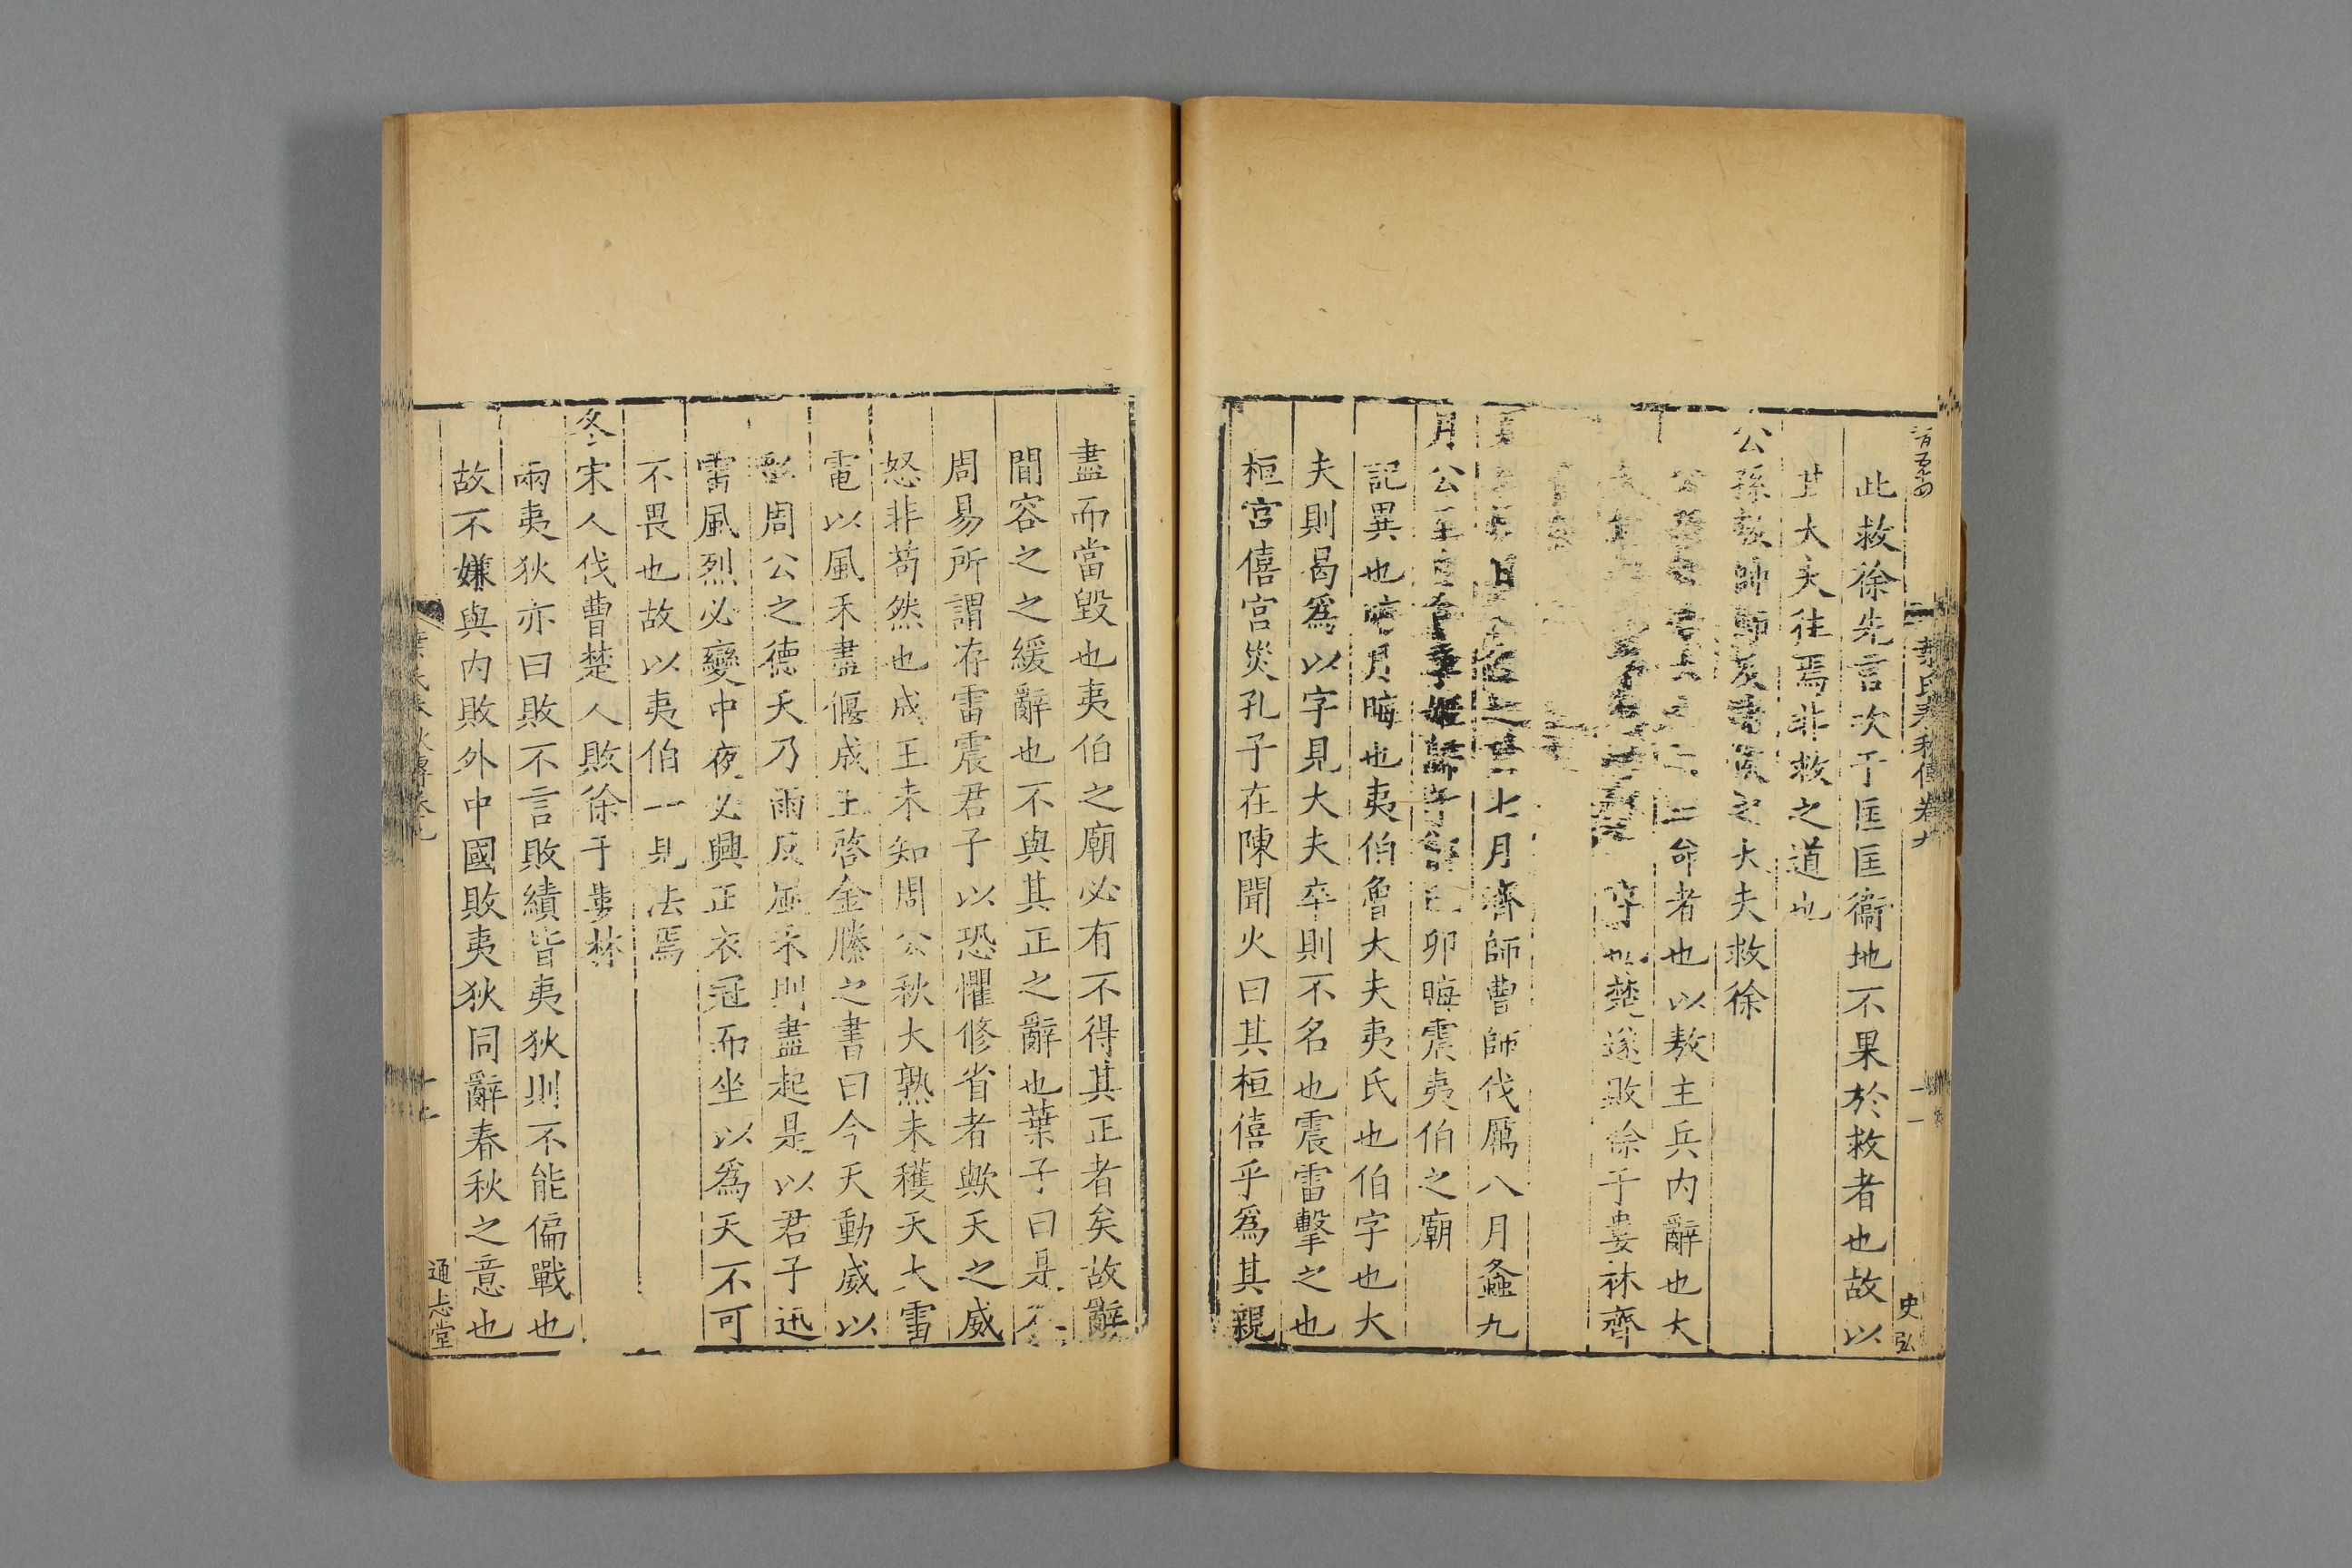 此救徐先言次于匡匡衞地不果於救者也故以
大夫往焉非救之道也
公孫敖帥師及諸侯之大夫救徐
命者也以敖主兵内辭也大
楚遂敗徐于婁林齊
夏五月日有食之秋七月齊師曹師伐厲八月螽九
月公至自會季姬歸于鄫己卯晦震夷伯之廟
記異也晦月晦也夷伯魯大夫夷氏也伯字也大
夫則曷爲以字見大夫卒則不名也震雷擊之也
桓宫僖宫災孔子在陳聞火曰其桓僖乎爲其親
盡而當毀也夷伯之廟必有不得其正者矣故辭
間容之之緩辭也不與其正之辭也葉子曰是
周易所謂洊雷震君子以恐懼修省者歟天之威
怒非苟然也成王未知周公秋大熟未穫天大雷
電以風禾盡偃成王啓金縢之書曰今天動威以
彰周公之德天乃雨反風禾則盡起是以君子迅
雷風烈必變中夜必興正衣冠而坐以爲天不可
不畏也故以夷伯一見法焉
冬宋人伐曹楚人敗徐于婁林
兩夷狄亦曰敗不言敗績皆夷狄則不能偏戰也
故不嫌與内敗外中國敗夷狄同辭春秋之意也
葉氏春秋傳卷九
史弘
通志堂